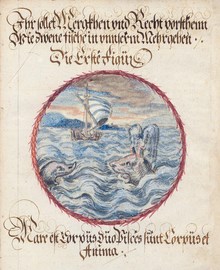 Ihr sollet Merckhen und Recht versthenn
Wie zwene fisch in unnserm Mehr gehen
Die Erste Figur
Mare est Corpus duo Pisces sunt Corpus et
Anima